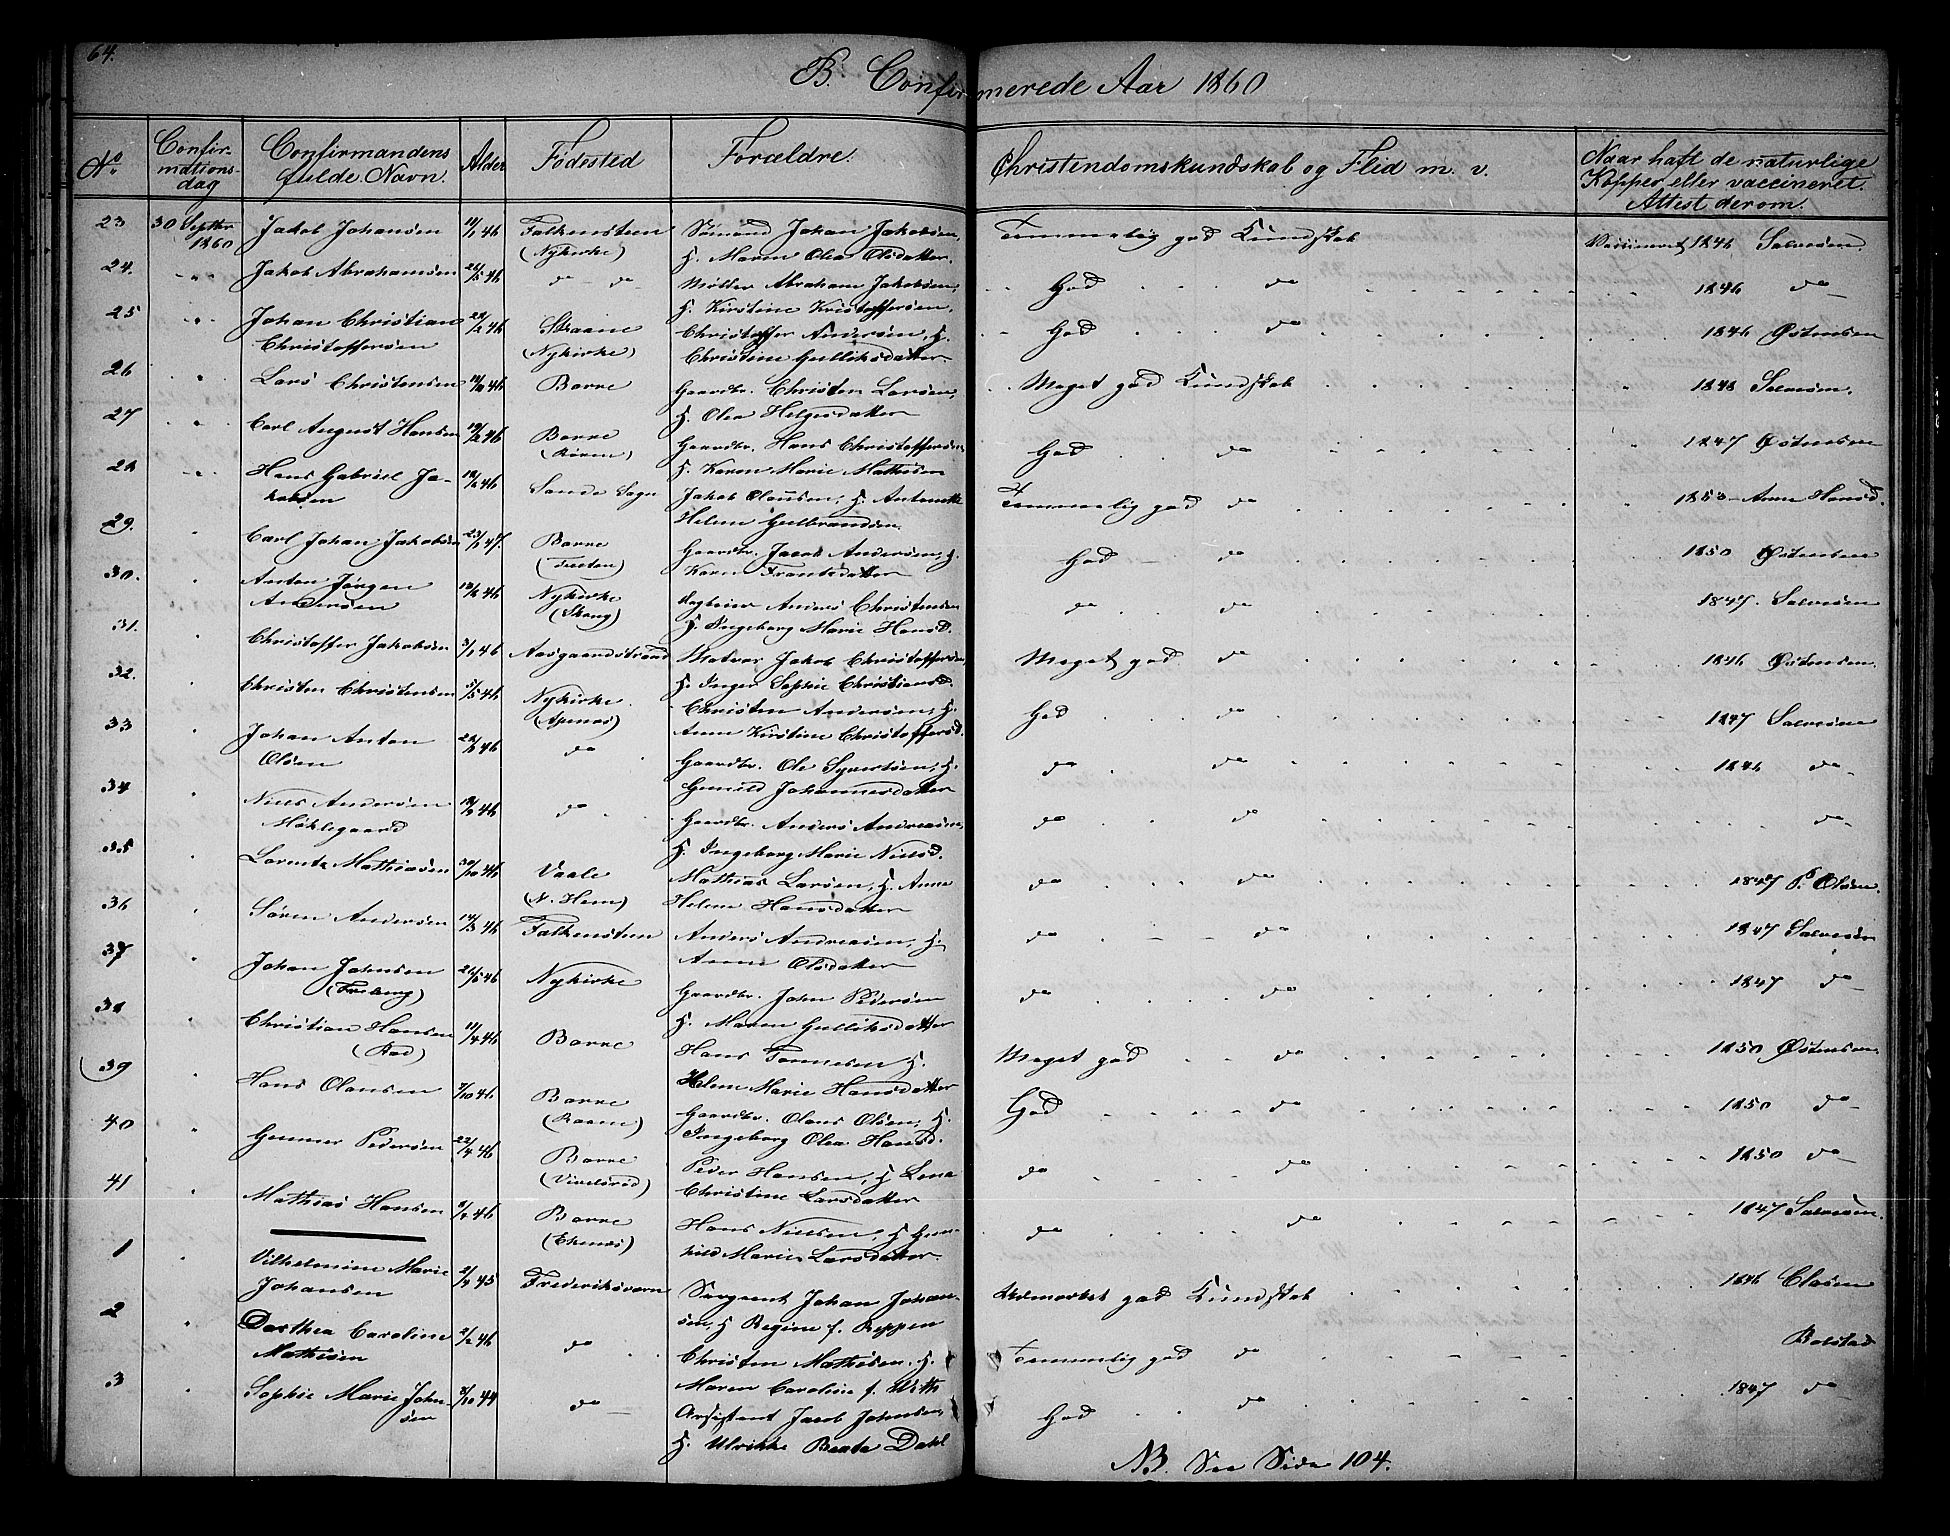 64.
B. Confirmerede Aar 1860
No.
Confirmationsdag
Confirmandens fulde Navn.
Alder
Fødested
Forældre.
Christendomskundskab og Flid m. v.
Naar haft de naturlige Kopper eller vaccineret. Attest derom.
23 30 Septbr 1860 Jakob Johansen 11/1 46 Falkensteen (Nykirke) Sømand Johan Jakobsen, H. Maren Olea Olsdatter Temmelig god Kundskab Vaccineret 1846 Salvesen
24. Jakob Abrahamsen /5 46 do do Møller Abraham Jakobsen, H. Kirstine Kristoffersen, God do 1846 do
25 Johan Christian Christoffersen 22/2 46 Straane (Nykirke) Christoffer Andersen, H. Christine Gulliksdatter God do 1846 Østensen
26 Lars Christensen 46 Borre Gaardbr. Christen Larsen, H. Olea Helgesdatter Meget god Kundskab 1848 Salvesen.
27 Carl August Hansen 46 Borre Gaardbr. Hans Christoffersen, H. Karen Marie Mathisen God do 1847 Østensen
28 Hans Gabriel Jakobsen 46 Sande Sogn Jakob Olausen, H. Antonette Helene Gulbrandsen. Temmelig god do 1853 Anne Hansd.
29. Carl Johan Jakobsen 23/1 47. Borre Gaardbr. Jacob Andersen, H. Karen Frantsdatter God do 1850 Østensen
30. Anton Jørgen Andersen 46 Nykirke (Skaug) Anders Christensen H. Ingeborg Marie Hansd. do do 1847. Salvesen
31. Christoffer Jakobsen 3/1 46 Aasgaardstrand Matros Jakob Christoffersen, H. Inger Sophie Christiansd. Meget god do 1846 Østensen.
32. Christen Christensen 5/5 46 Nykirke (Apenæs) Christen Andersen, H. Anne Kirstine Christoffersd. God do 1847 Salvesen
33 Johan Anton Olsen 46 do Gaardbr. Ole Syvertsen, H. Gunild Johannesdatter do do 1846 do
34 Niels Andersen Møklegaard 46 do Gaardbr. Anders Andreasen, H. Ingeborg Marie Nielsd. do do do
35 Lorentz Mathiasen 30/10 46 Vaale (N. Hem) Mathias Larsen, H. Anne Helene Hansdatter do do 1847 P. Olsen.
36 Søren Andersen 14/3 46 Falkensteen Anders Andreasen, H. Anne Olsdatter do do 1847 Salvesen
37 Johan Johnsen (Freberg) 46 Nykirke Gaardbr. John Pedersen H. Maren Gulliksdatter do do 1847 do
38 Christian Hansen (Rød) 11/4 46 Borre Hans Tommesen H. Helene Marie Hansdatter Meget god do 1850 Østensen.
39 Hans Olausen 7/10 46 Borre Gaardbr. Olaus Olsen, H. Ingeborg Olea Hansd. God do 1850 do
40 Gunner Pedersen 22/4 46 Borre (Vivelsrød) Peder Hansen, H. Lena Christine Larsdatter do do 1850 do
41 Mathias Hansen 46 Borre (Ekenæs) Hans Nielsen, H. Gunhild Marie Larsdatter. do do 1847 Salvesen.
1 Vilhelmine Marie Johansen 2/4 45 Frederiksværn Sergeant Johan Johansen, H. Regine f. Reppen Udmærket god Kundskab 1846 Clasen
2 Dorthea Caroline Mathisen 2/2 46 do Christen Mathisen, H. Maren Caroline f. With Temmelig god do Bolstad
3 Sophie Marie Johnsen 3/10 44 do Assistent Jacob Johnsen, H. Ulrikke Beata Dahl God do 1847 do
NB. See Side 104.